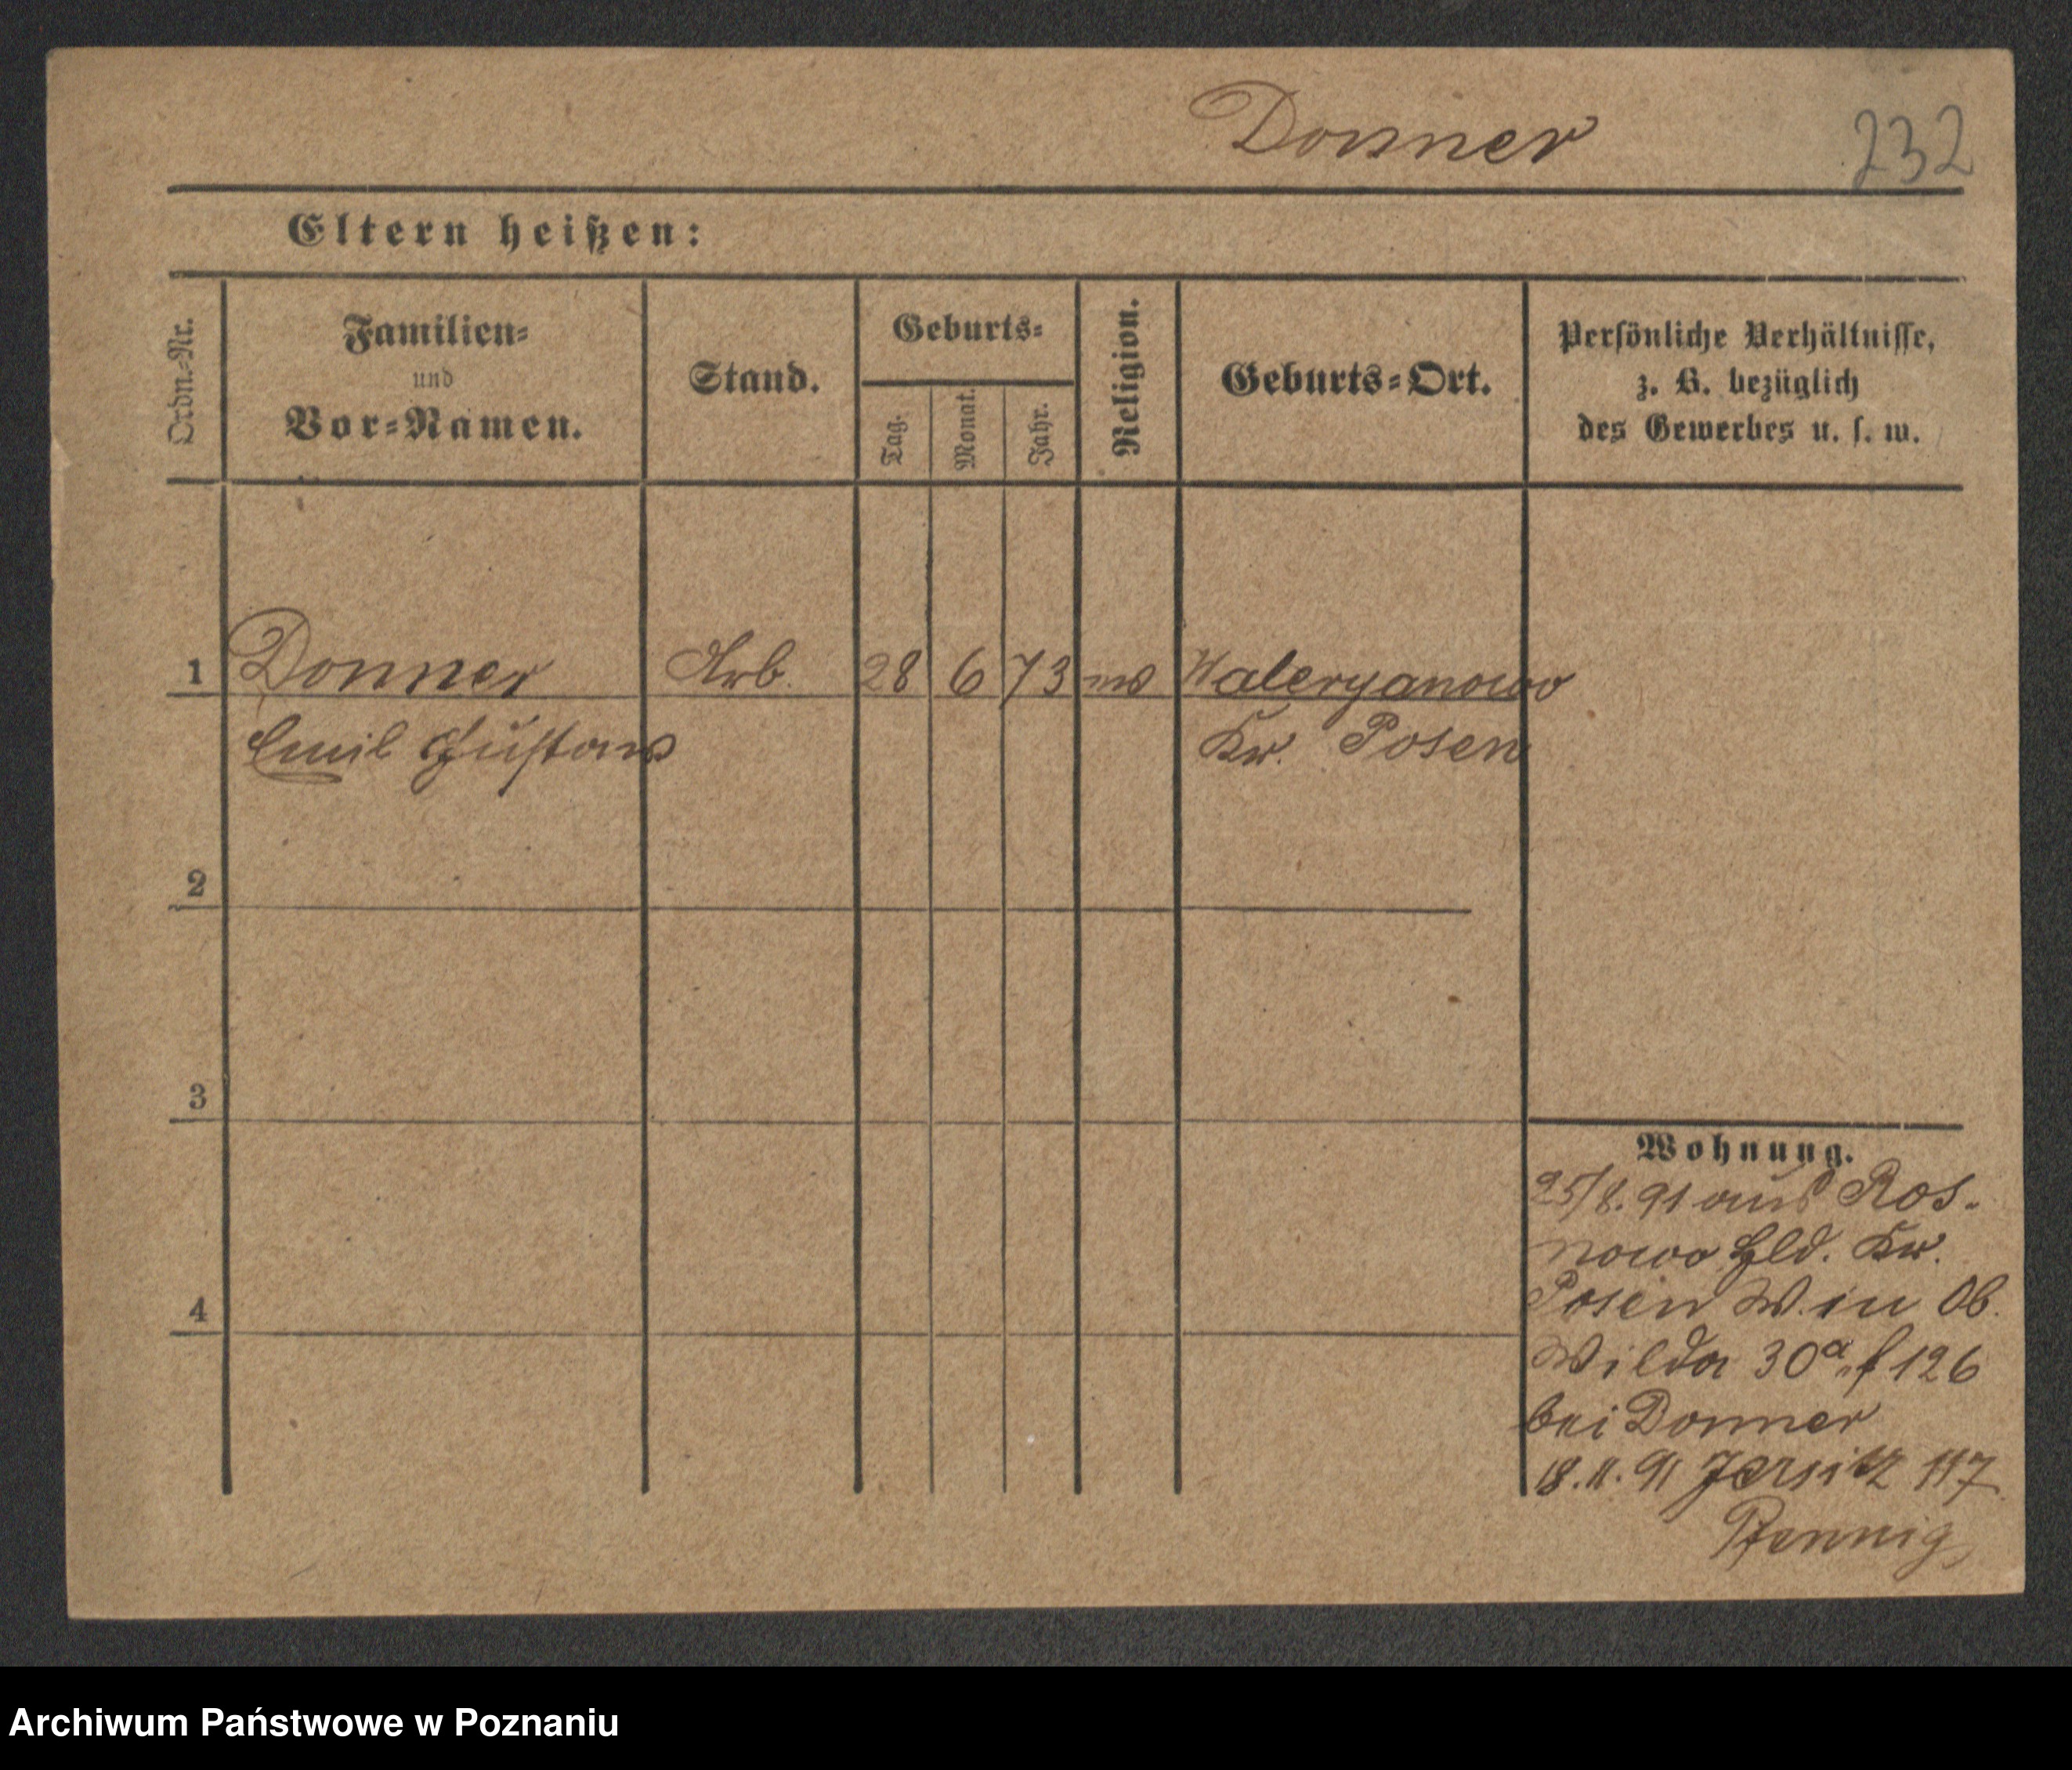 Donner
232
Eltern heißen:
Ordn.-Nr.
Familien-
und
Vor-Namen.
Stand.
Geburts-
Tag.
Monat.
Jahr.
Religion.
Geburts-Ort.
Persönliche Verhältnisse,
z. B. bezüglich
des Gewerbes u. s. w.
1 Donner Arb. 28 6 73 ev Waleryanowo
Emil Gustav Kr. Posen
2
3
4
Wohnung.
25/8. 91 aus Ros-
nowo Hld. Kr.
Posen W. in Ob.
Wilda 30a 126
bei Donner
18. 11. 91 Jersitz 117
Pfennig
Archiwum Państwowe w Poznaniu